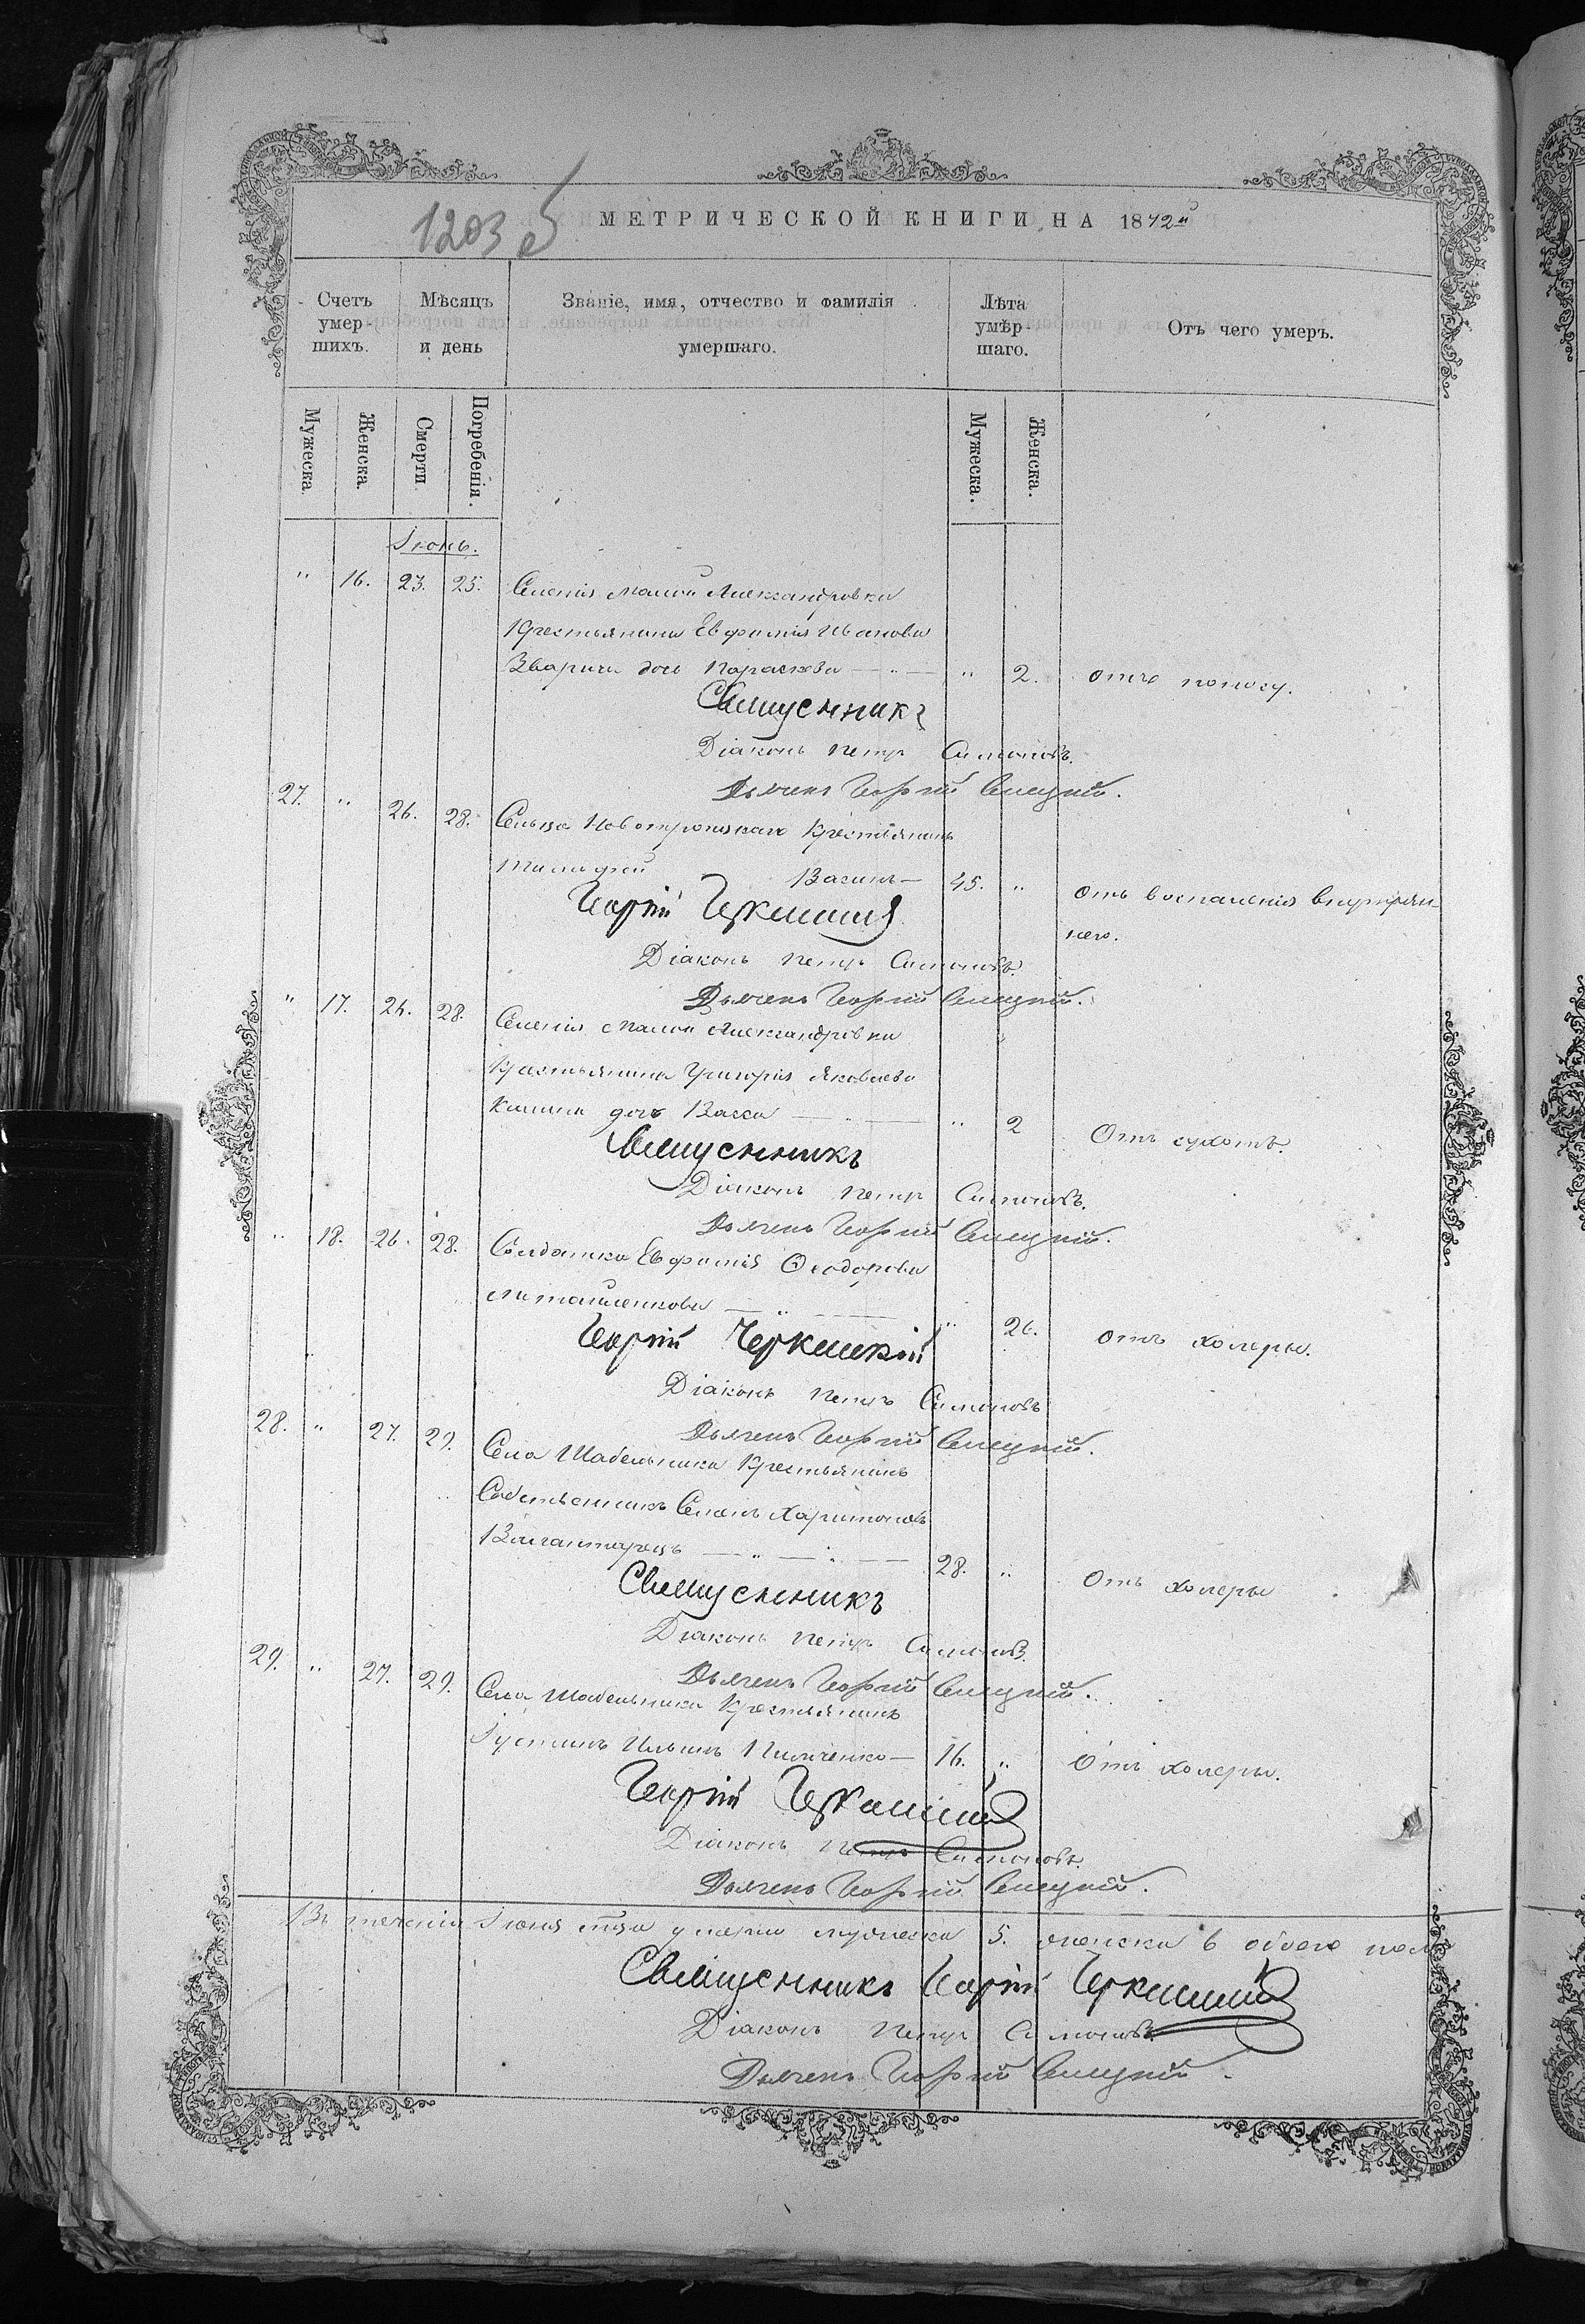 1203 об
МЕТРИЧЕСКОЙ КНИГИ НА 1872й
Счетъ умер шихъ.
Мѣсяцъ и день
Званіе, имя, отчество и фамилія умершаго.
Лѣта умер шаго.
Отъ чего умеръ.
Мужеска.
Женска.
Смерти
Погребенія.
Мужеска.
Женска.
Іюнь.
" 16. 23. 25. Селенія Малой Александровки
Крестьянина Евфимія Иванова
Зварича дочь Параскева " 2. отъ поносу.
Священникъ
Діаконъ Петръ Симоновъ.
Дьячекъ Георгій
27. " 26. 28. Сельца Новотроицкаго Крестьянинъ
Тимофей 45. " Отъ воспаленія внутрен-
няго.
Георгій
Діаконъ Петръ Симоновъ.
Дьячекъ Георгій
" 17. 26. 28. Селенія Малой Александровки
Крестьянина Григорія Яковлева
дочь Васса " 2 Отъ сухотъ.
Священникъ
Діаконъ Петръ Симоновъ.
Дьячекъ Георгій
" 18. 26. 28. Солдатка Евфимія Ѳеодорова
" 26. отъ холеры.
Георгій
Діаконъ Петръ Симоновъ
Дьячекъ Георгій
28. " 27. 29. Села Шабельника Крестьянинъ
Собственникъ Семенъ Харитоновъ
28. " Отъ холеры
Священникъ
Діаконъ Петръ Симоновъ.
Дьячекъ Георгій
29. " 27. 29. Села Шабельника Крестьянинъ
Іустинъ Ильинъ 16. " Отъ холеры.
Георгій
Діаконъ Петръ Симоновъ.
Дьячекъ Георгій
Въ теченіи Іюня умерло мужеска 5. женска 6 обоего пола
Священникъ Георгій
Діаконъ Петръ Симоновъ.
Дьячекъ Георгій